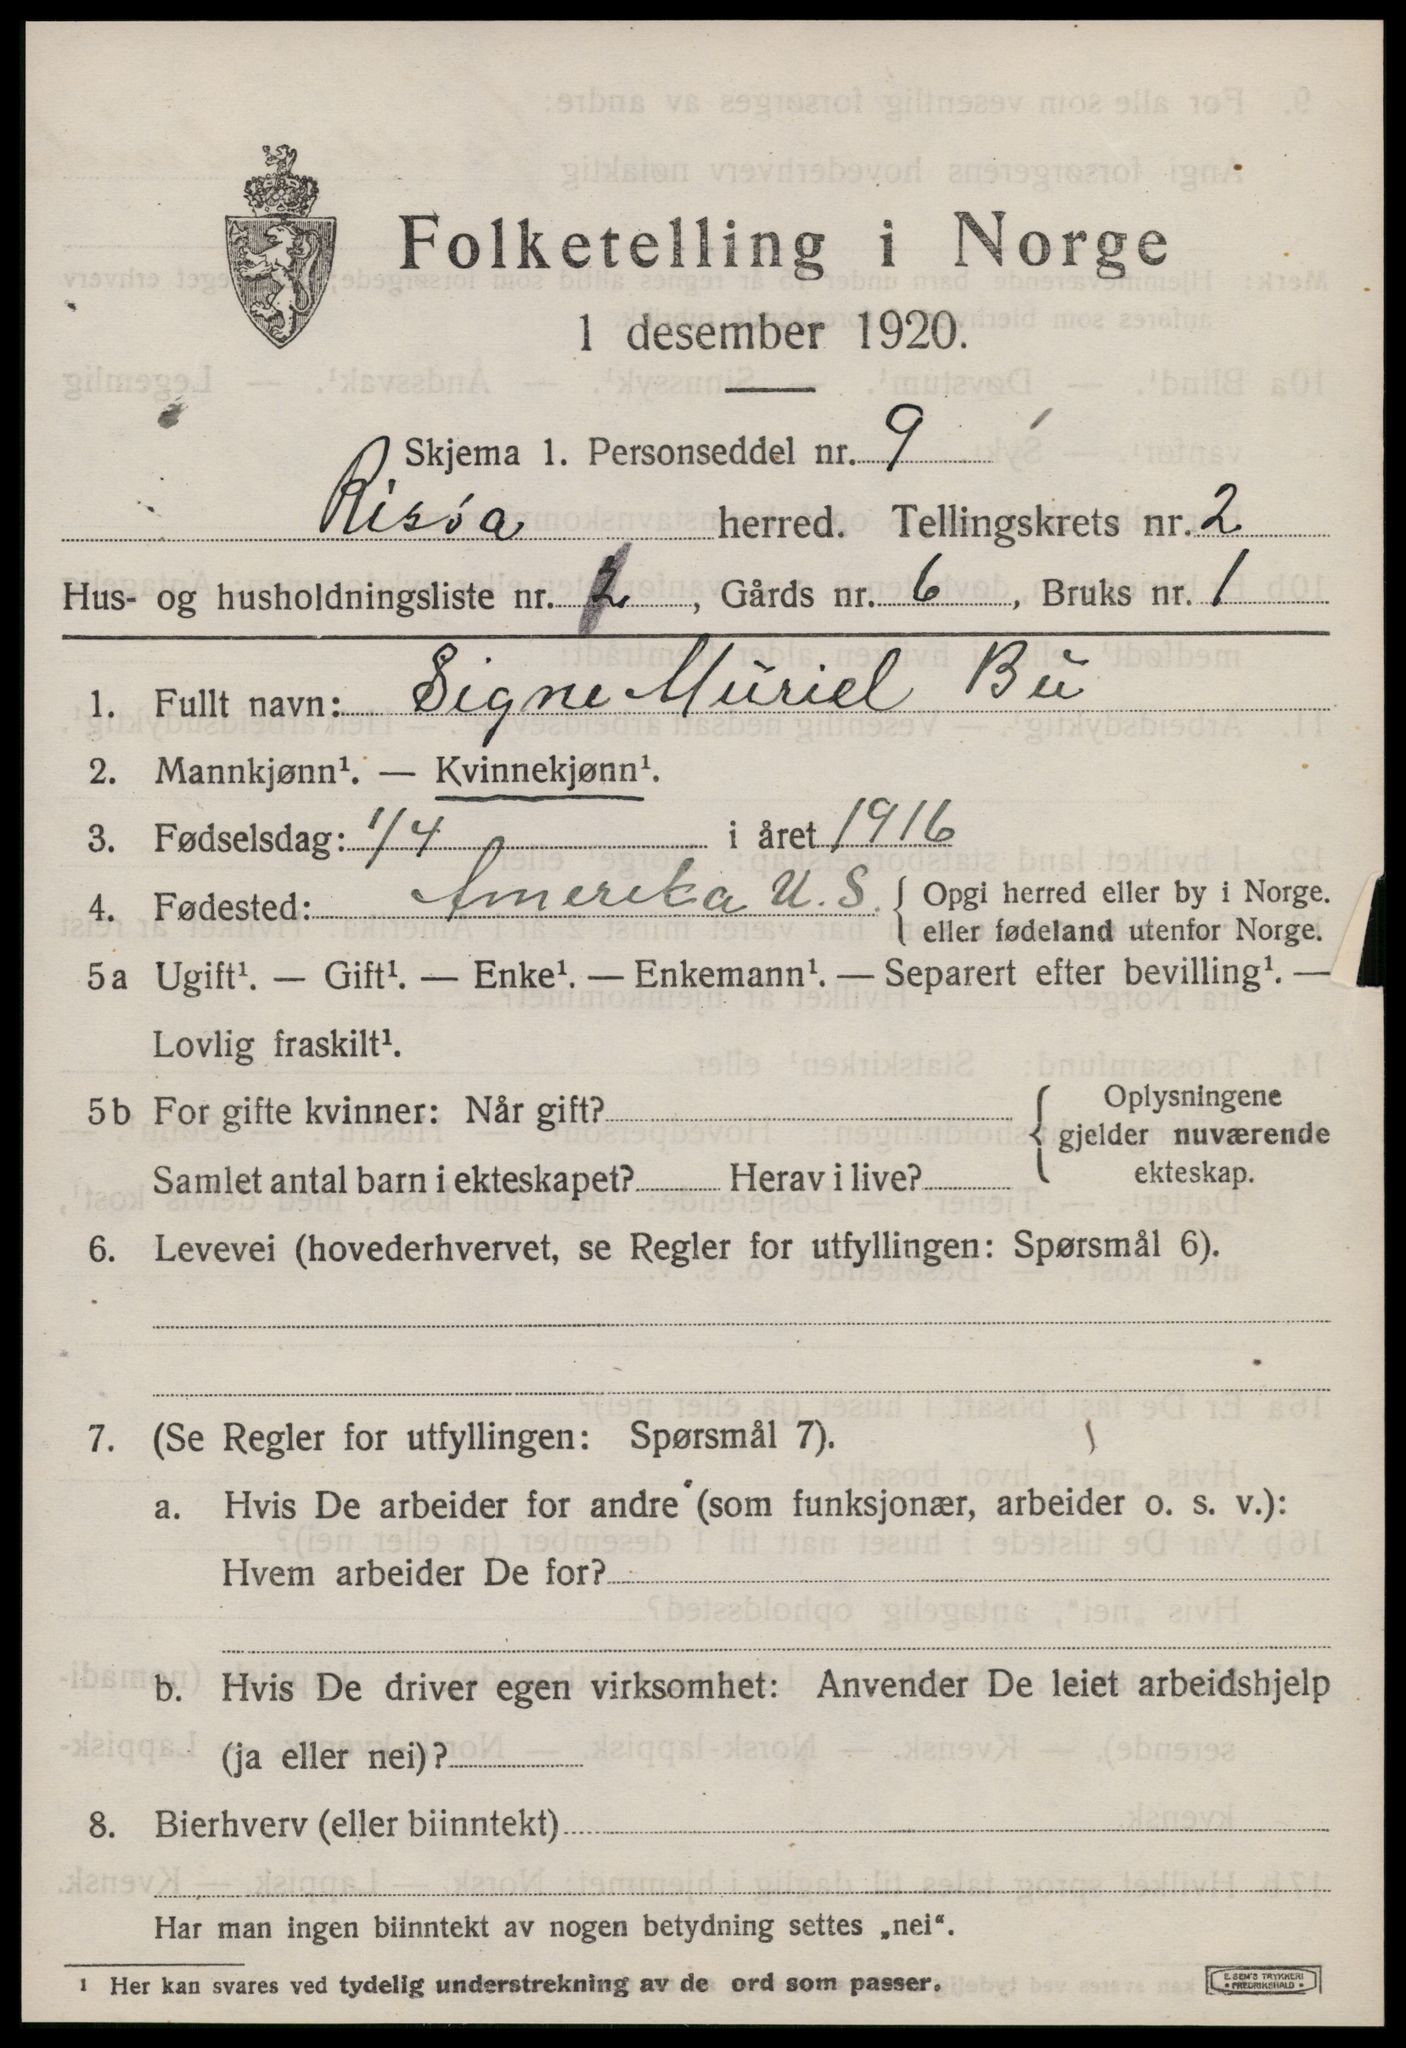 Folketelling i Norge
1 desember 1920.
Skjema 1. Personseddel nr. 9
Risøa herred. Tellingskrets nr. 2
Hus- og husholdningsliste nr. 2, Gårds nr. 6, Bruks nr. 1
1. Fullt navn: Signe Muriel Bu
2. Mannkjønn¹. — Kvinnekjønn¹.
3. Fødselsdag: 1/4 i året 1916
4. Fødested: Amerika U. S. { Opgi herred eller by i Norge.
eller fødeland utenfor Norge.
5a Ugift¹. — Gift¹. — Enke¹. — Enkemann¹. — Separert efter bevilling¹. —
Lovlig fraskilt¹.
5b For gifte kvinner: Når gift? { Oplysningene
gjelder nuværende
Samlet antal barn i ekteskapet? Herav i live? ekteskap.
6. Levevei (hovederhvervet, se Regler for utfyllingen: Spørsmål 6).
7. (Se Regler for utfyllingen: Spørsmål 7).
a. Hvis De arbeider for andre (som funksjonær, arbeider o. s. v.):
Hvem arbeider De for?
b. Hvis De driver egen virksomhet: Anvender De leiet arbeidshjelp
(ja eller nei)?
8. Bierhverv (eller biinntekt)
Har man ingen biinntekt av nogen betydning settes „nei“.
¹ Her kan svares ved tydelig understrekning av de ord som passer.
E. SEM'S TRYKKERI
FREDRIKSHALD